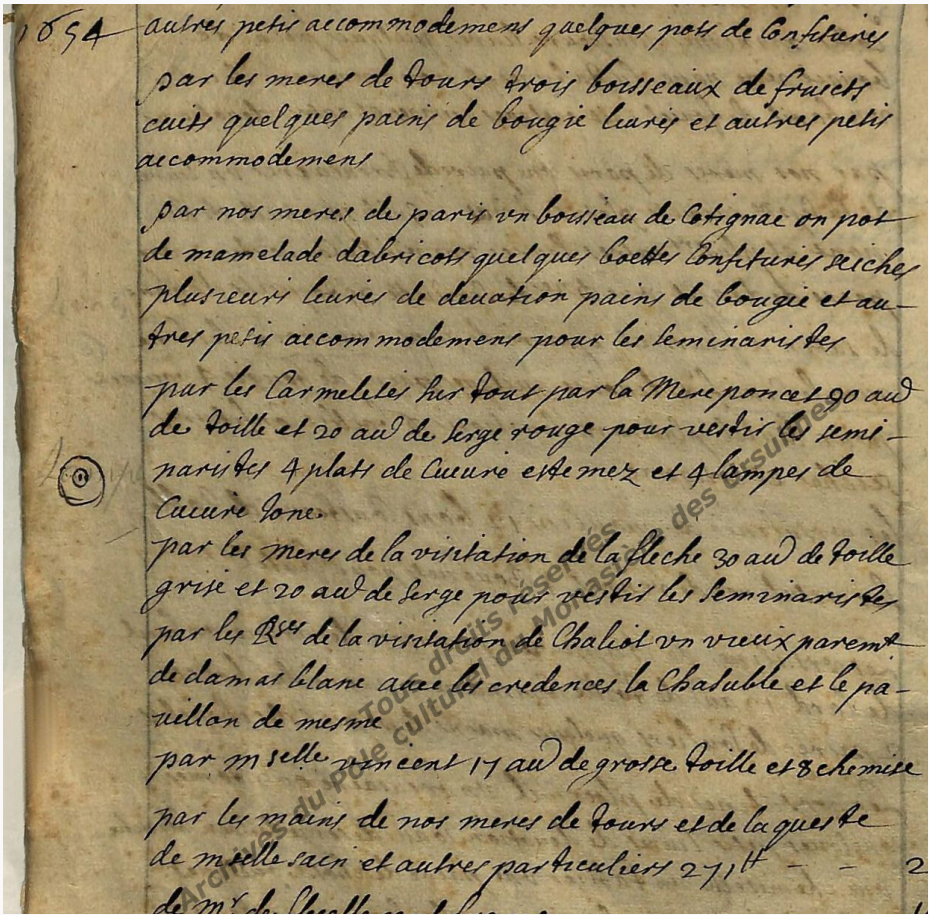 1654 autres petis accommodemens quelques pots de Confitures
par les meres de tours trois boisseaux de fruicts
cuits quelques pains de bougie liures et autres petis
accommodemens
par nos meres de paris vn boisseau de Cotignac on pot
de mamelade dabricots quelques boettes Confitures seiches
plusieurs liures de deuation pains de bougie et au-
tres petis accommodemens pour les seminaristes
par les Carmelites sur tout par la Mere poncet 90 au
de toille et 20 au de serge rouge pour vestir les semi-
naristes 4 plats de Cuiure estemez et 4 lampes de
Cuiure Jone
par les meres de la visitation de la fleche 30 au de toille
grise et 20 au de serge pour vestir les seminaristes
par les Rses de la visitation de Chaliot vn vieux paremt
de damas blanc auec les credences la Chasuble et le pa-
uillon de mesme
par mselle vincent 17 au de grosse toille et 8 chemise
par les mains de nos meres de tours et de la queste
de mselle sain et autres particuliers 271 tt - - 2
de mr de
Tous droits réservés
Archives du Pôle culturel du Monastère des Ursulines